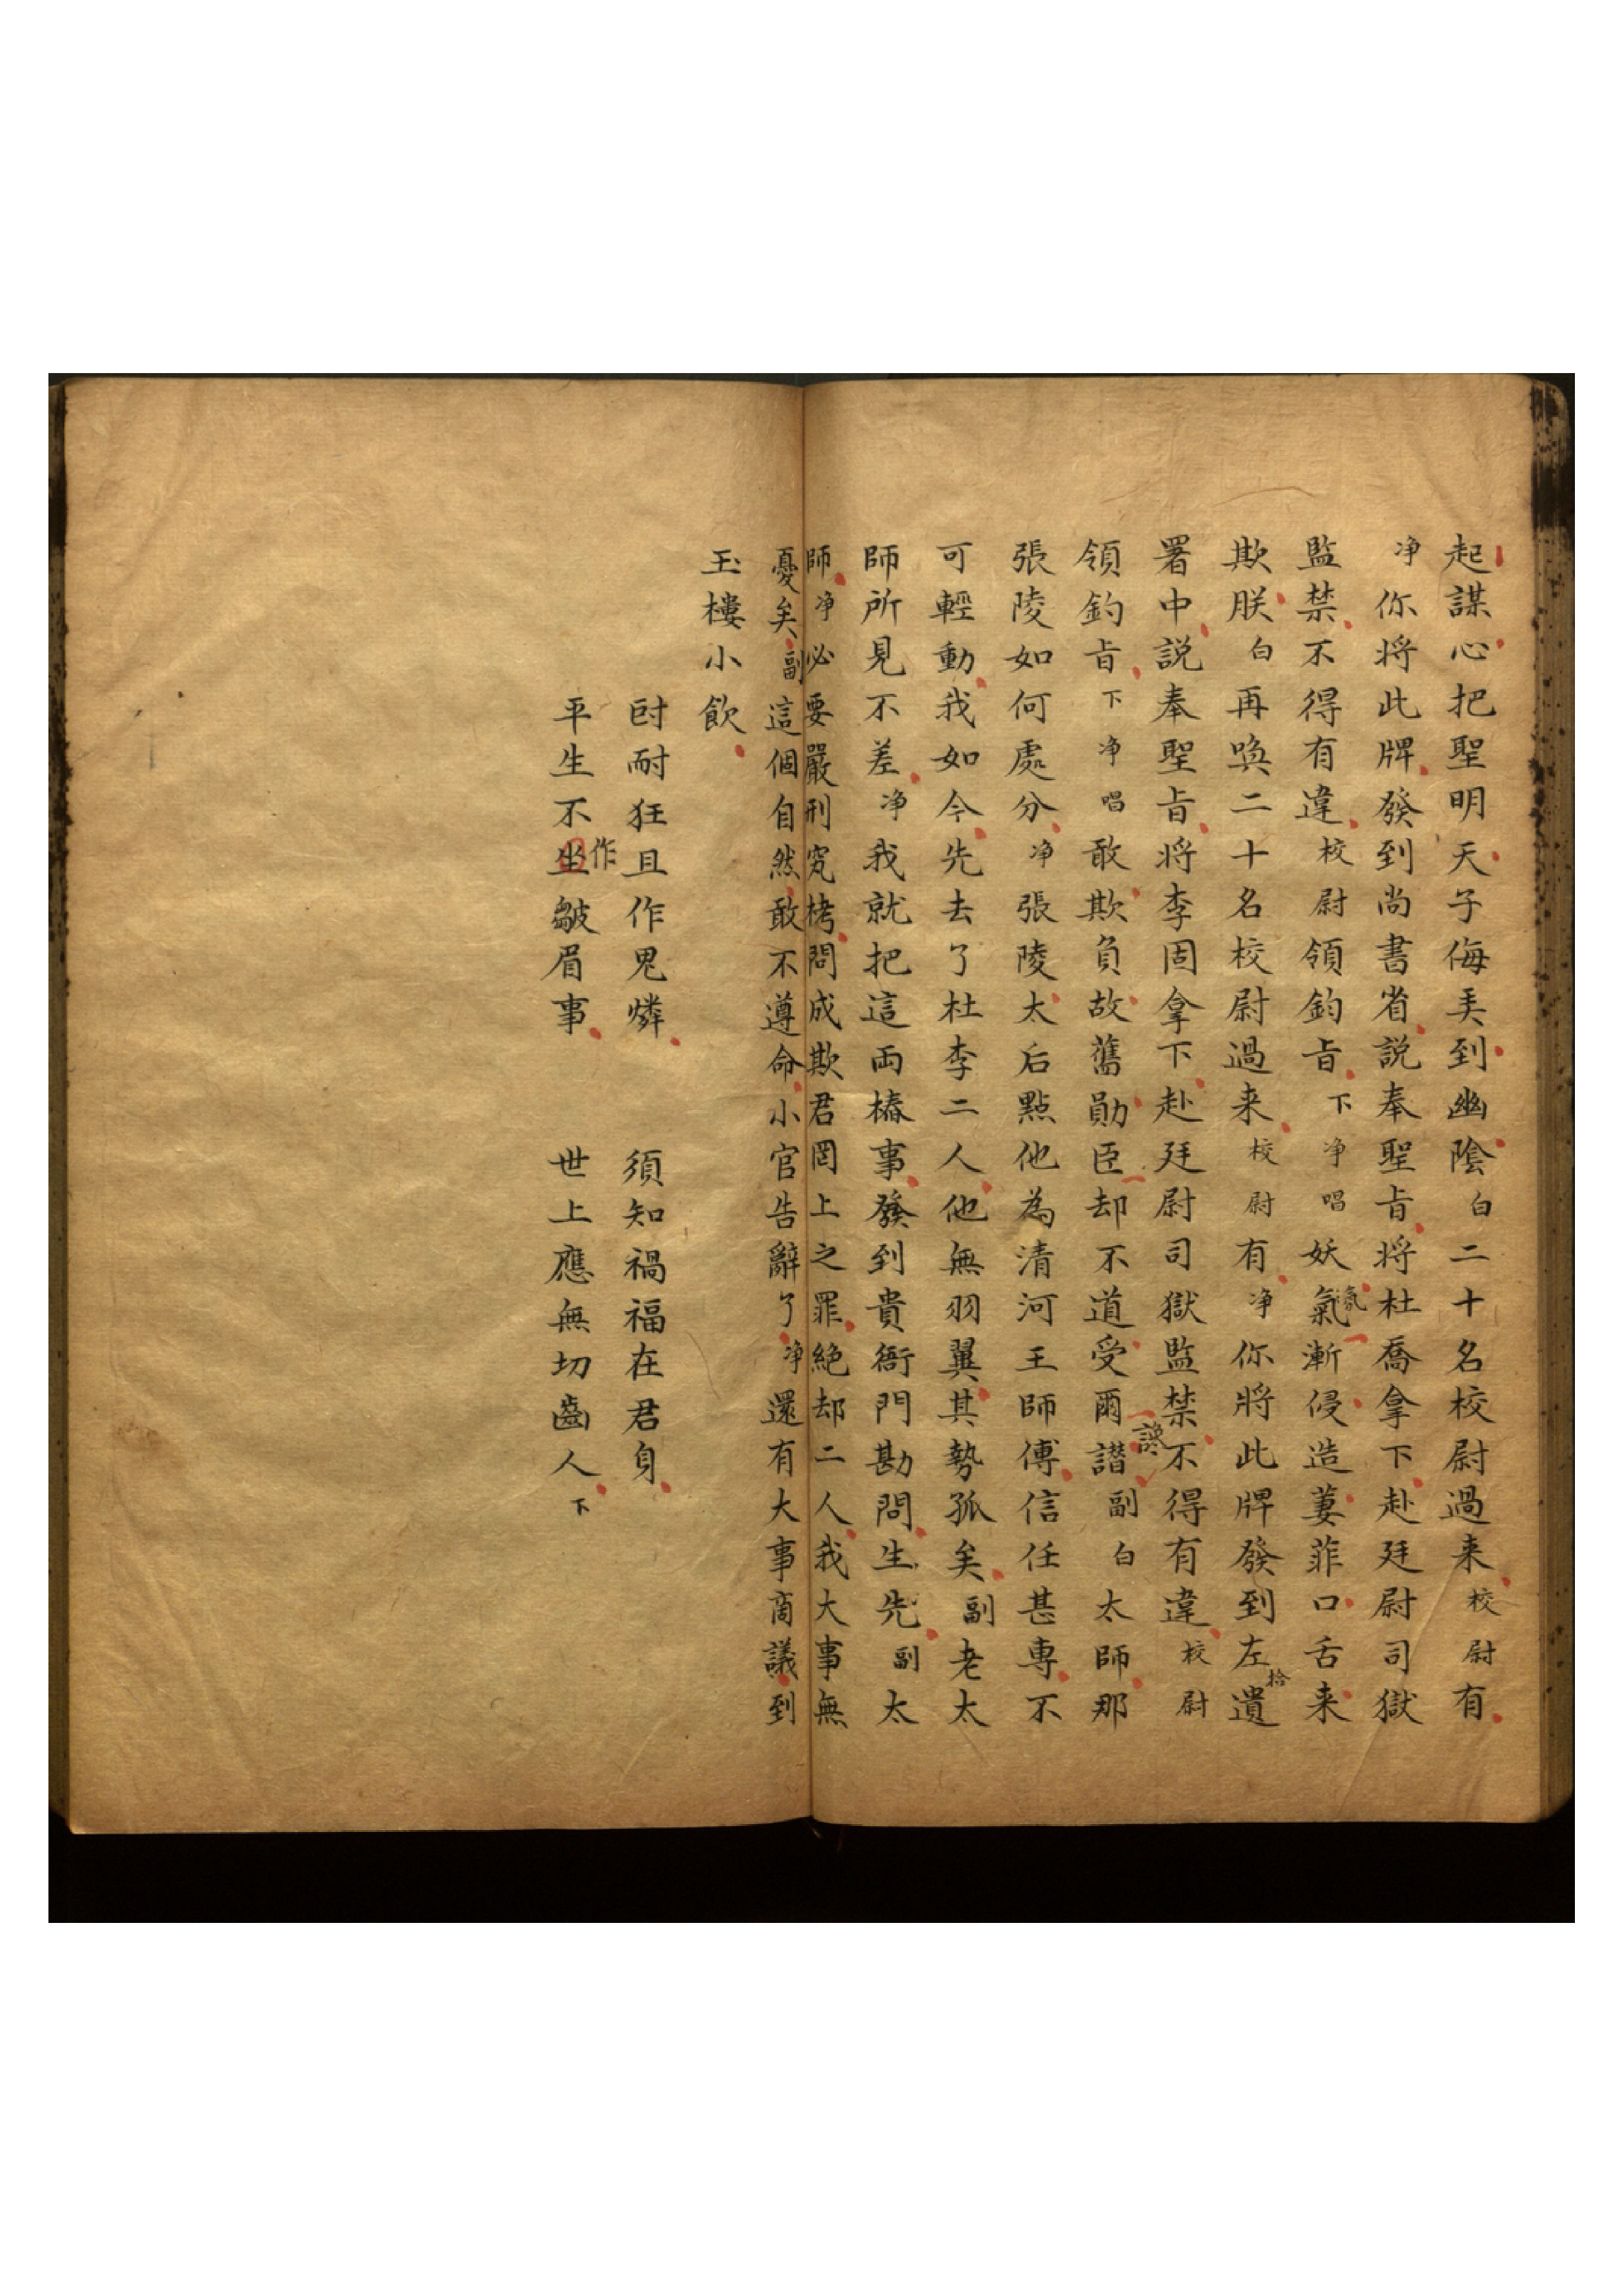 起謀心把聖明天子侮弄到幽陰白二十名校尉過来校尉有
净你将此牌發到尚書省説奉聖旨将杜喬拿下赴廷尉司獄
監禁不得有違校尉領鈞旨下净唱妖氣氛漸侵造萋菲口舌来
欺朕白再喚二十名校尉過来校尉有净你將此牌發到左遺拾
署中説奉聖旨将李固拿下赴廷尉司獄監禁不得有違校尉
領鈞旨下净唱敢欺負故舊勛臣却不道受爾譛副白太師那
張陵如何處分净張陵太后點他為清河王師傅信任甚專不
可輕動我如今先去了杜李二人他無羽翼其勢孤矣副老太
師所見不差净我就把這両樁事發到貴衙門勘問生先副太
師净必要嚴刑究栲問成欺君罔上之罪絶却二人我大事無
憂矣副這個自然敢不遵命小官告辭了净還有大事商議到
玉樓小飲
尀耐狂且作鬼燐 須知禍福在君身
平生不坐作皺眉事 世上應無切齒人下